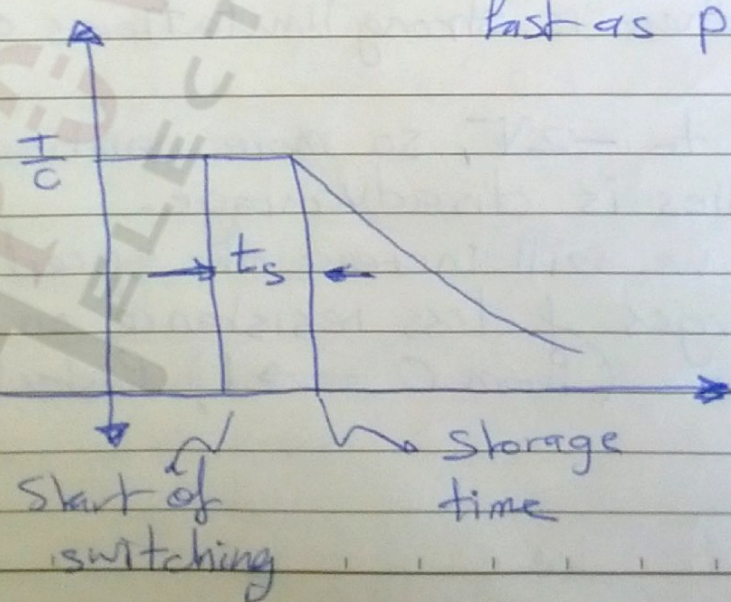 fast as p
I
c
ts
Start of
switching
storage
time
ELECT